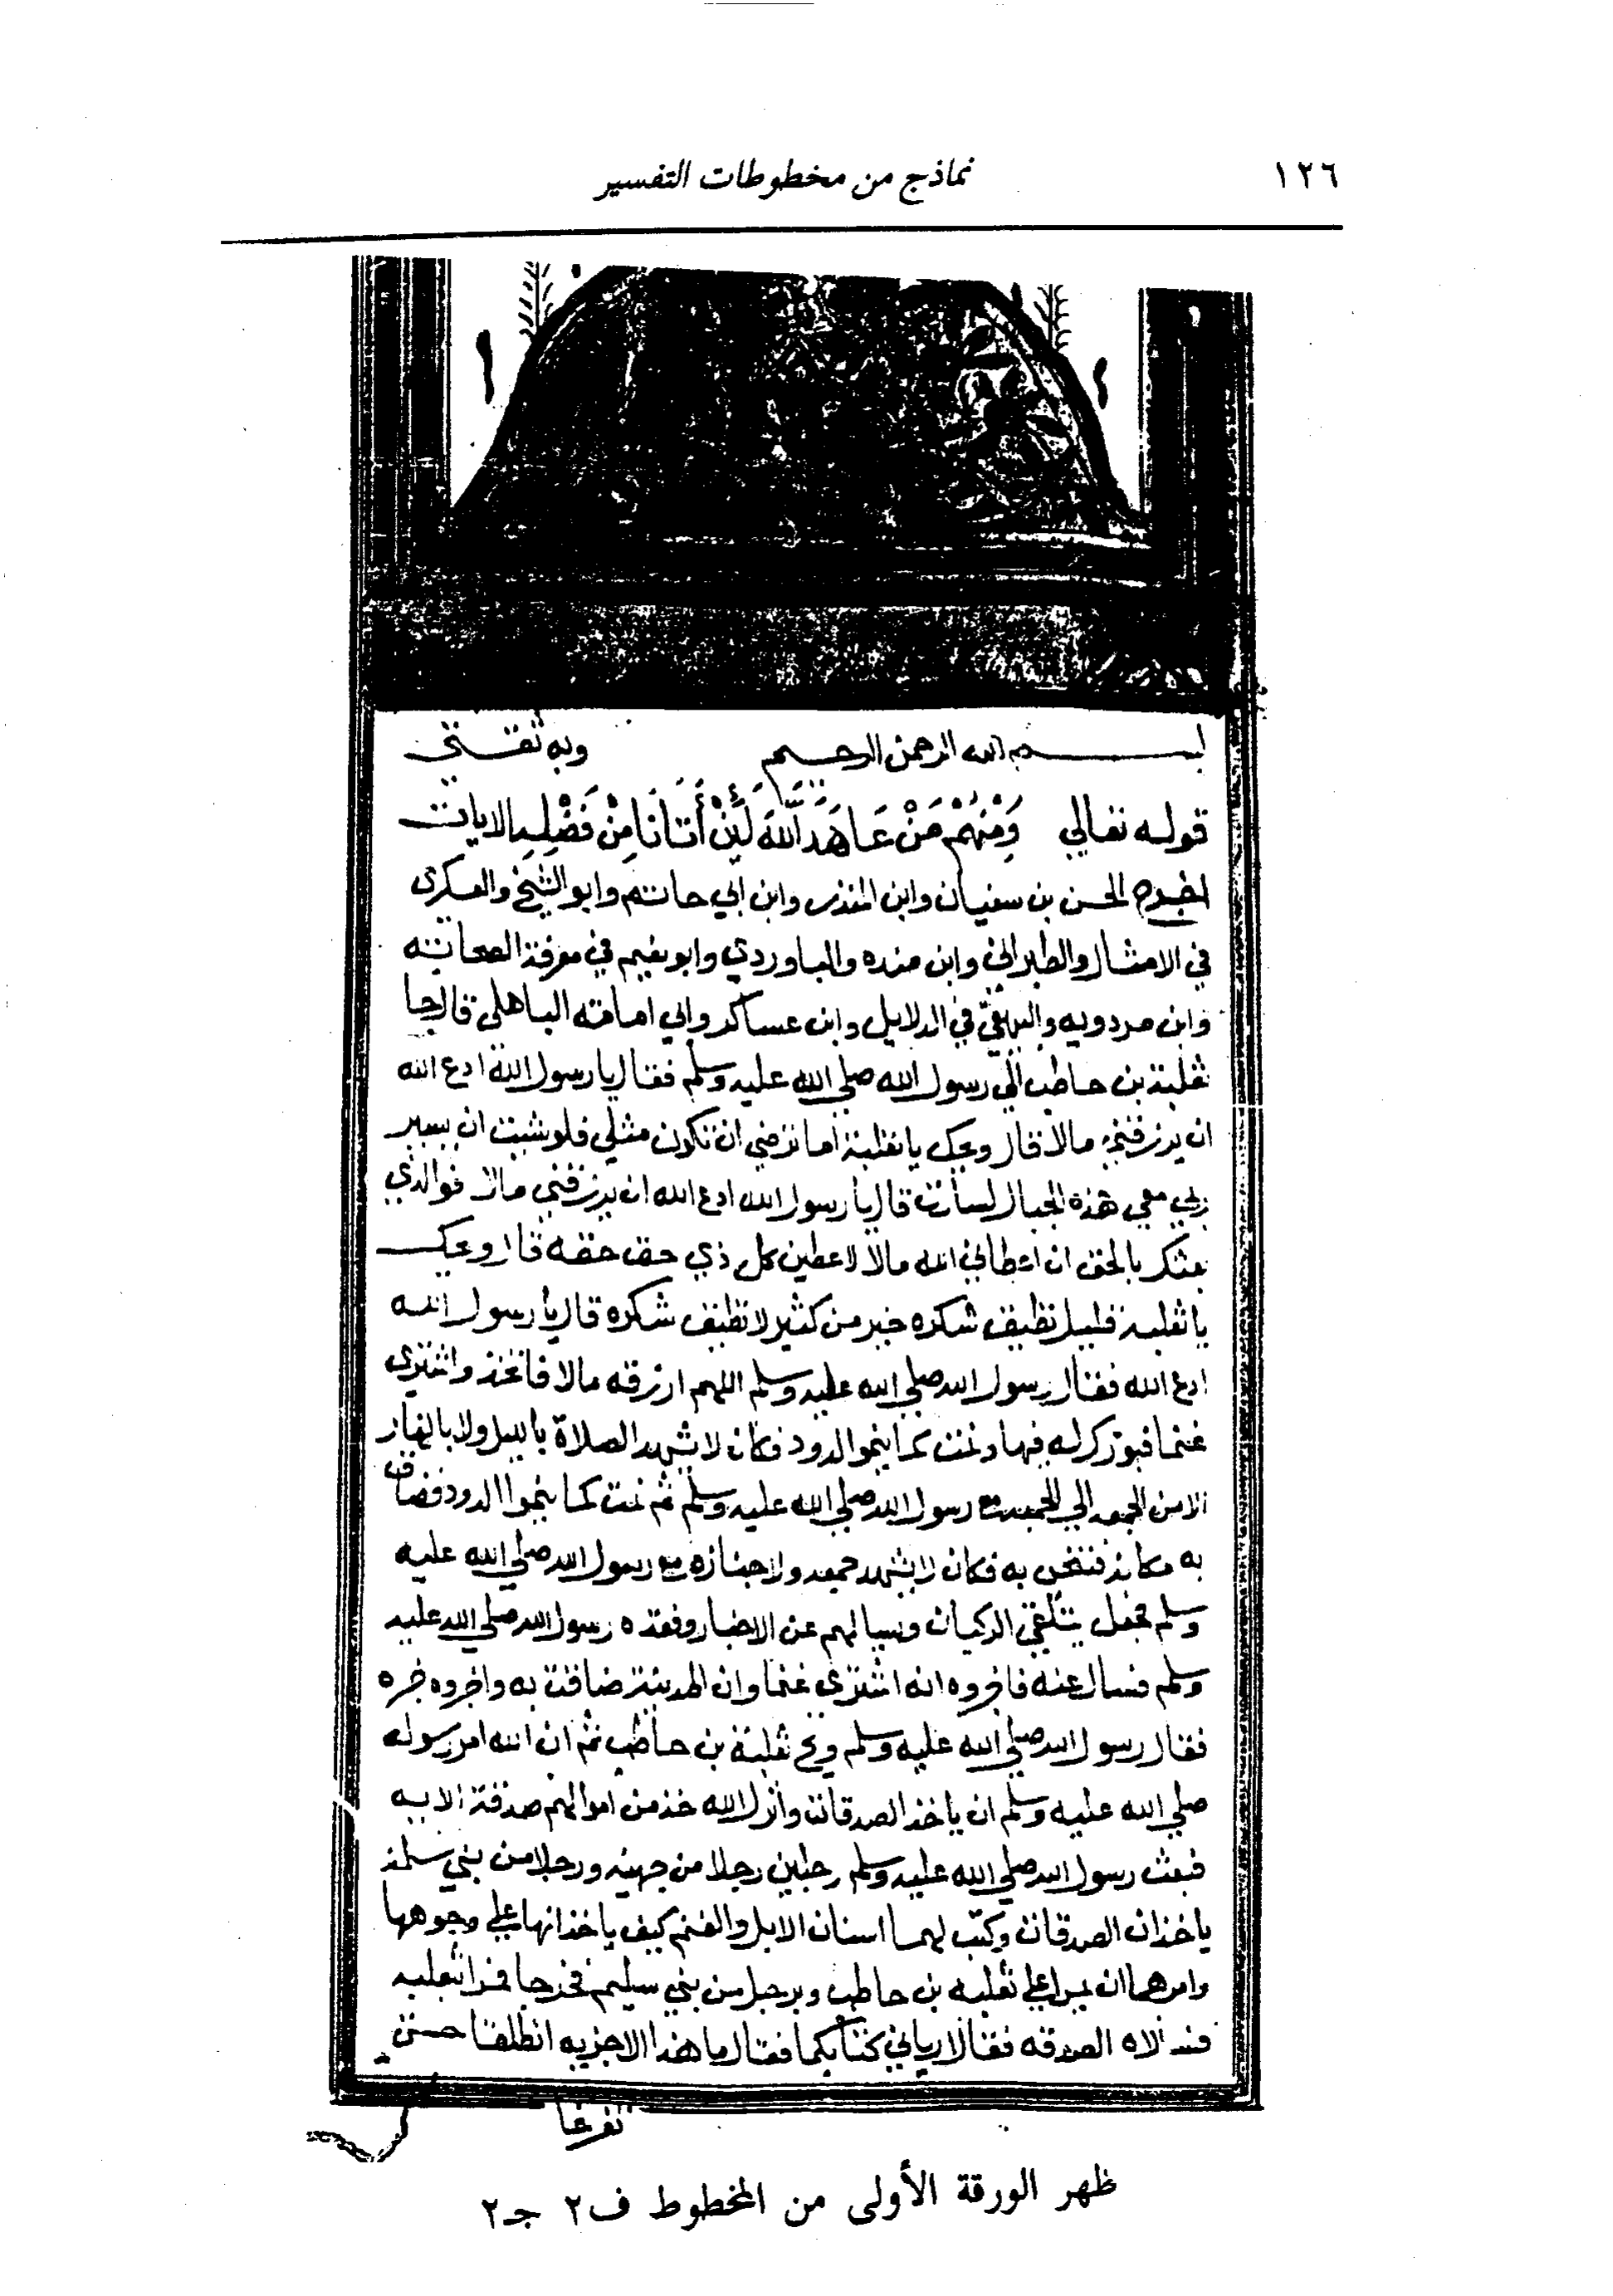 ١٢٦
نماذج من مخطوطات التفسير
بسم الله الرحمن الرحيم وبه ثقتي
قوله تعالي وَمِنْهُم مَنْ عَاهَدَ اللَّهَ لَئِنْ أَتانَا مِنْ فَضْلِهِ الايات
اخرج الحسن بن سفيان وابن المنذر وابن ابي حاتم وابو الشيخ والعسكرى
في الامثال والطبراني وابن منده والباوردي وابو نعيم في معرفة الصحابة
وابن مردويه والبيهقي في الدلايل وابن عساكر وابي امامة الباهلي قال جا
ثعلبة بن حاطب الي رسول الله صلي الله عليه وسلم فقال يا رسول الله ادع الله
ان يرزقني مالا قال ويحك يا ثعلبة اما ترضي ان تكون مثلي فلو شيت ان يسير
ربي معي هذه الجبال لسارت قال يا رسول الله ادع الله ان يرزقني مالا فوالذي
بعثك بالحق ان اعطاني الله مالا لاعطين كل ذي حق حقه قال ويحك
يا ثعلبة قليل تطيق شكره خير من كثير لا تطيق شكره قال يا رسول الله
ادع الله فقال رسول الله صلي الله عليه وسلم اللهم ارزقه مالا فاتخذ واشترى
غنما فبورك له فيها ونمت كما ينموا الدود فكان لا يشهد الصلاة بالليل ولا بالنهار
الا من الجمعه الي الجمعة مع رسول الله صلي الله عليه وسلم ثم نمت كما ينموا الدود فضاق
به مكانه فتنحى به فكان لا يشهد جمعه ولا جنازه مع رسول الله صلي الله عليه
وسلم فجعل يتلقي الركبان ويسالهم عن الاخبار وفقده رسول الله صلي الله عليه
وسلم فسال عنه فاخبروه انه اشترى غنما وان المدينة ضاقت به واخبروه خبره
فقال رسول الله صلي الله عليه وسلم ويح ثعلبة بن حاطب ثم ان الله امر رسوله
صلي الله عليه وسلم ان ياخذ الصدقات وانزل الله خذ من اموالهم صدقة الايه
فبعث رسول الله صلي الله عليه وسلم رجلين رجلا من جهينه ورجلا من بني سلمة
ياخذان الصدقات وكتب لهما اسنان الابل والغنم كيف ياخذانها علي وجوهها
وامرهما ان يمرا علي ثعلبه بن حاطب وبرجل من بني سليم فخرجا فمرا بثعلبه
فسالاه الصدقه فقال ارياني كتابكما فقال ما هذا الا جزيه انطلقا حستى
تفرغا
ظهر الورقة الأولى من المخطوط ف٢ جـ٢